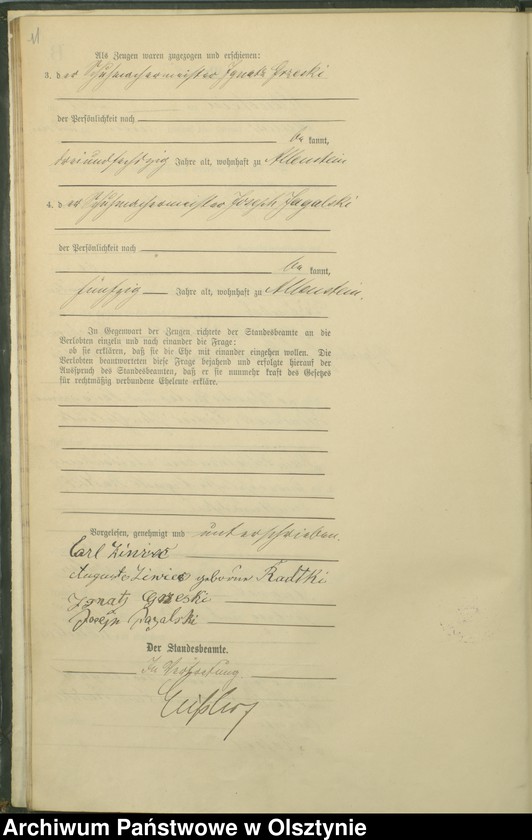 11
Als Zeugen waren zugezogen und erschienen:
3. der Schuhmachermeister Ignatz Gozeski
der Persönlichkeit nach
be kannt,
dreiundsechszig Jahre alt, wohnhaft zu Allenstein
4. der Schuhmachermeister Joseph
der Persönlichkeit nach
be kannt,
fünfzig Jahre alt, wohnhaft zu Allenstein.
In Gegenwart der Zeugen richtete der Standesbeamte an die
Verlobten einzeln und nach einander die Frage:
ob sie erklären, daß sie die Ehe mit einander eingehen wollen. Die
Verlobten beantworteten diese Frage bejahend und erfolgte hierauf der
Ausspruch des Standesbeamten, daß er sie nunmehr kraft des Gesetzes
für rechtmäßig verbundene Eheleute erkläre.
Vorgelesen, genehmigt und unterschrieben.
Carl
geborne Radtki
Ignatz Gozeski
Joseph
Der Standesbeamte.
In Vertretung.
Archiwum Państwowe w Olsztynie